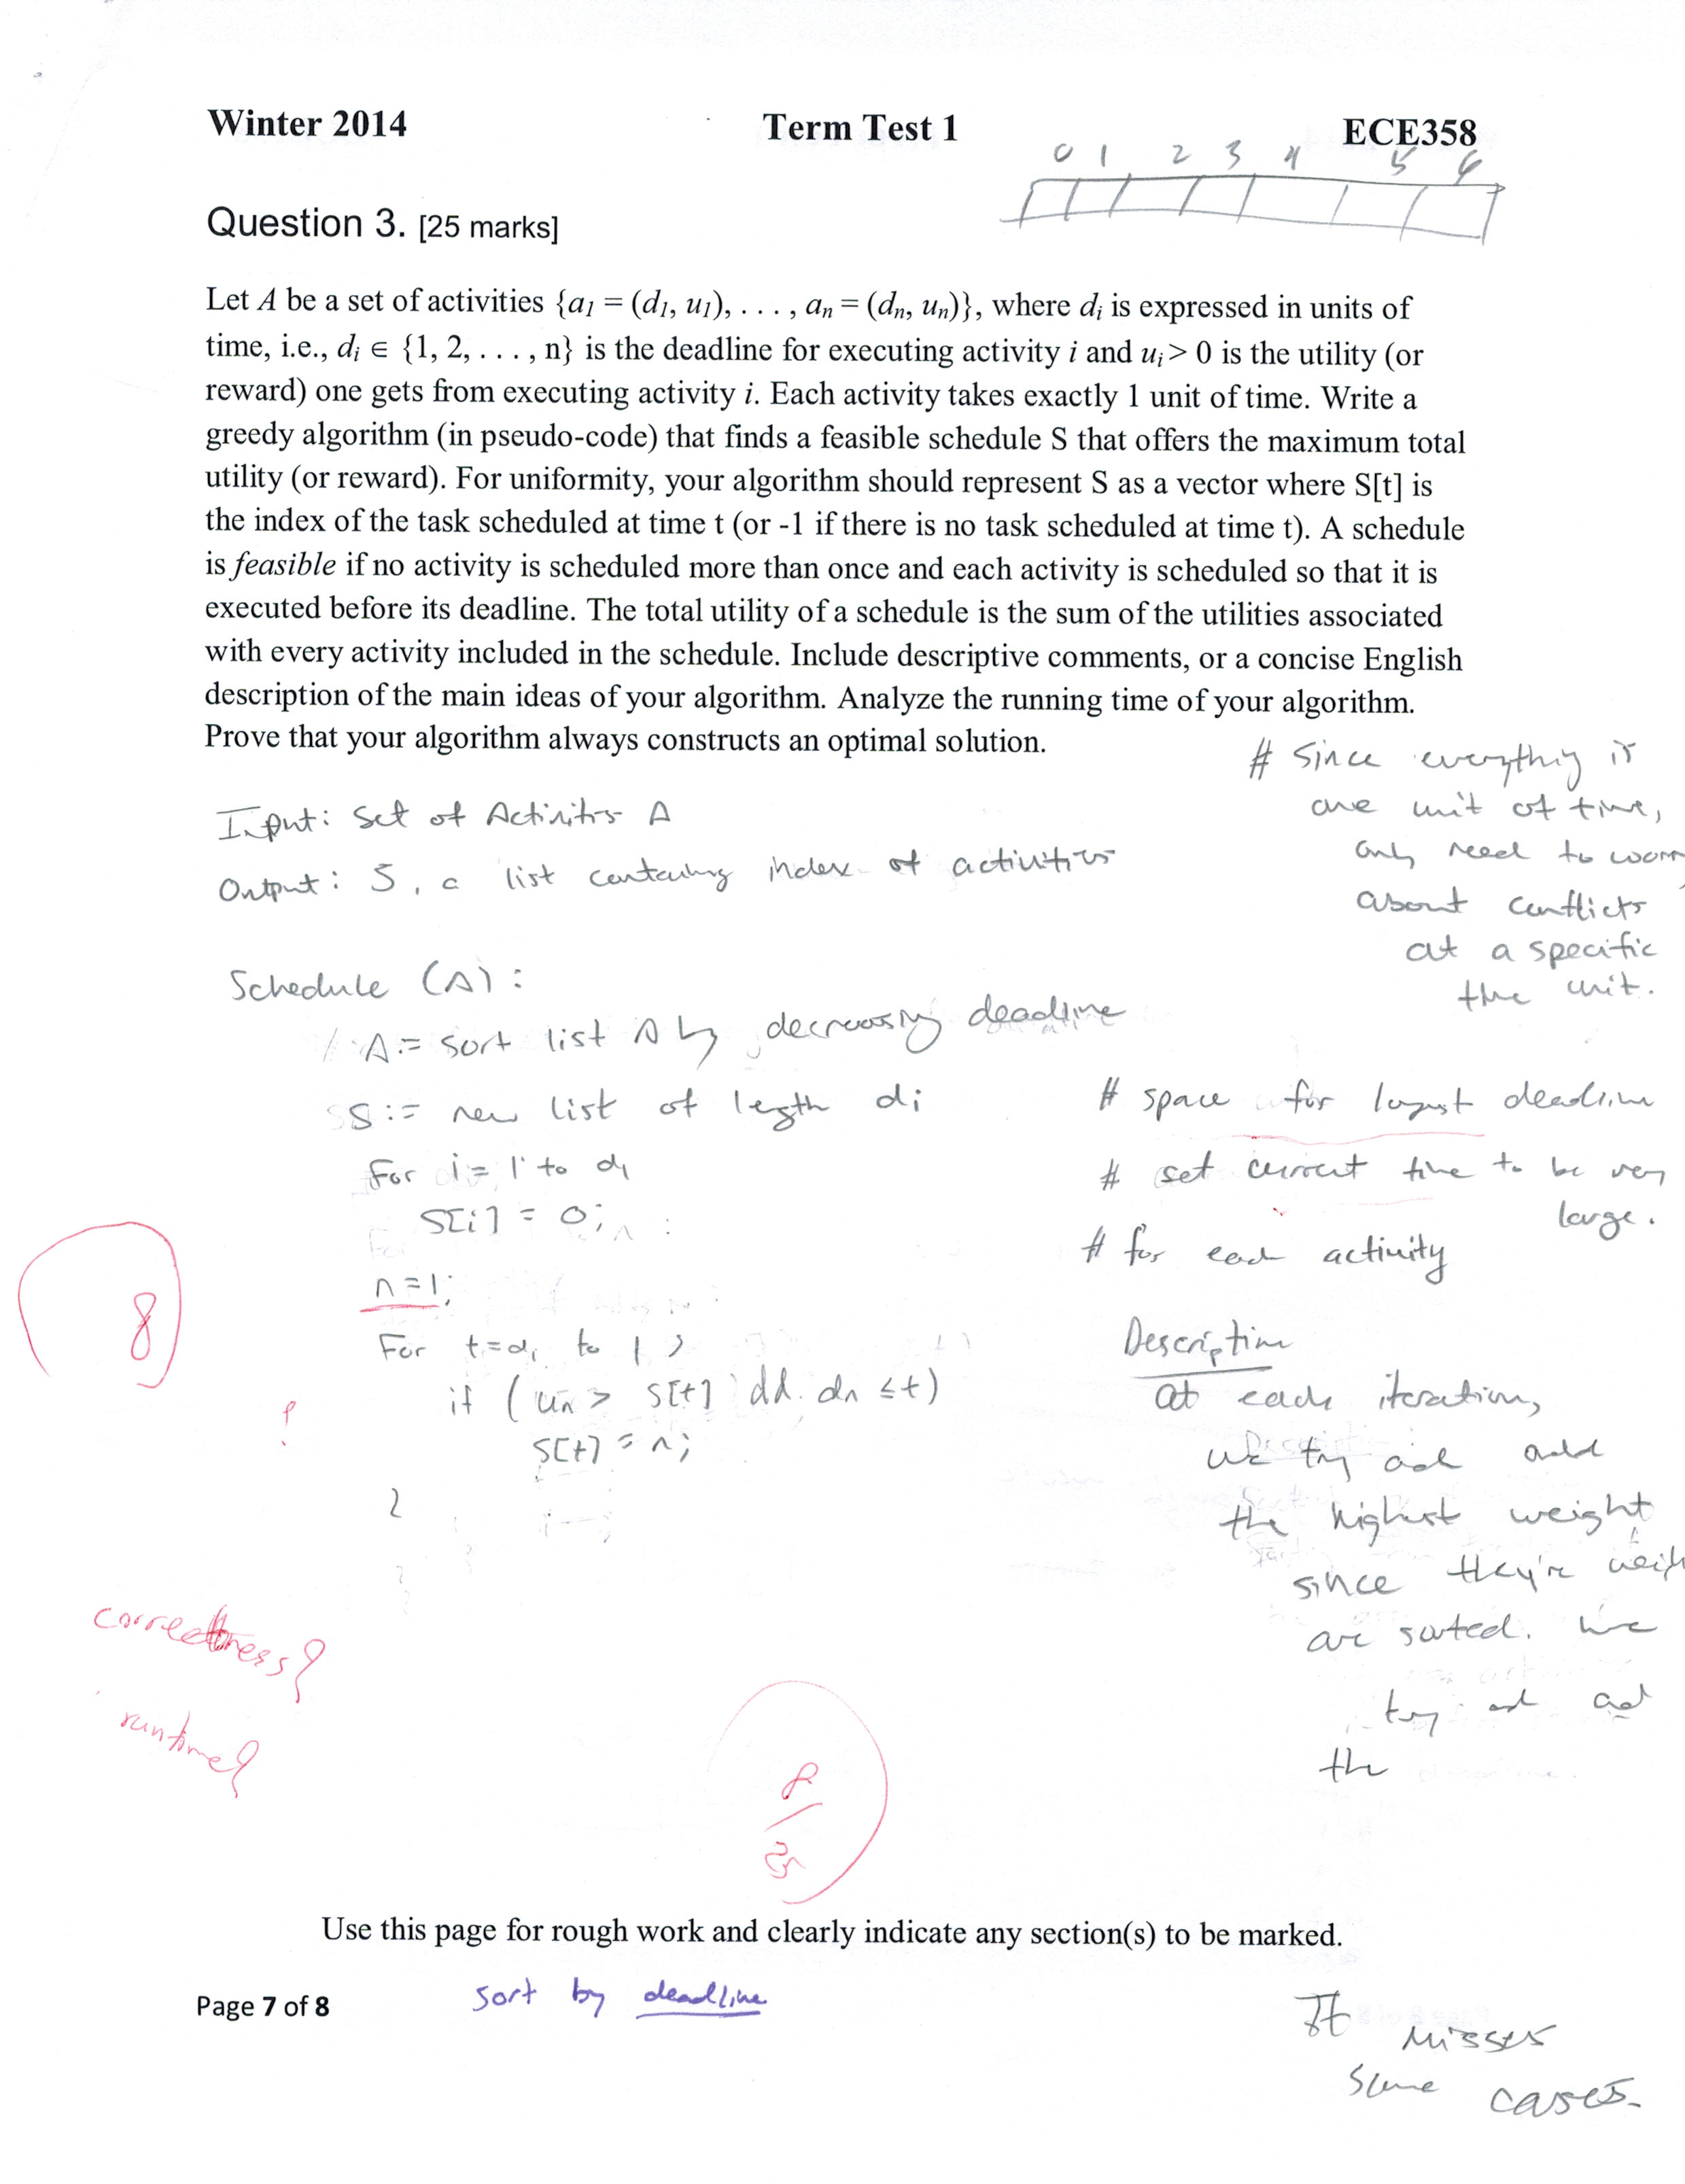 Winter 2014 Term Test 1 ECE358
0 1 2 3 4 5 6
Question 3. [25 marks]
Let A be a set of activities {a1 = (d1, u1), . . . , an = (dn, un)}, where di is expressed in units of
time, i.e., di ∈ {1, 2, . . . , n} is the deadline for executing activity i and ui > 0 is the utility (or
reward) one gets from executing activity i. Each activity takes exactly 1 unit of time. Write a
greedy algorithm (in pseudo-code) that finds a feasible schedule S that offers the maximum total
utility (or reward). For uniformity, your algorithm should represent S as a vector where S[t] is
the index of the task scheduled at time t (or -1 if there is no task scheduled at time t). A schedule
is feasible if no activity is scheduled more than once and each activity is scheduled so that it is
executed before its deadline. The total utility of a schedule is the sum of the utilities associated
with every activity included in the schedule. Include descriptive comments, or a concise English
description of the main ideas of your algorithm. Analyze the running time of your algorithm.
Prove that your algorithm always constructs an optimal solution.
# since everything is
one unit of time,
only need to worry
about conflicts
at a specific
time unit.
Input: Set of Activities A
Output: S, a list containing index of activities
Schedule (A):
A:= sort list A by decreasing deadline
S:= new list of length di # space for largest deadline
For i = 1 to d1 # set current time to be very
large.
S[i] = 0;
# for each activity
n=1;
For t=d1 to 1
if ( un > S[t] dn ≤ t)
S[t] = n;
Description
at each iteration,
we try and add
the highest weight
since they're
are sorted. we
try and add
the
8
?
correctness?
runtime?
8
25
Use this page for rough work and clearly indicate any section(s) to be marked.
Page 7 of 8
sort by deadline
It misses
some cases.